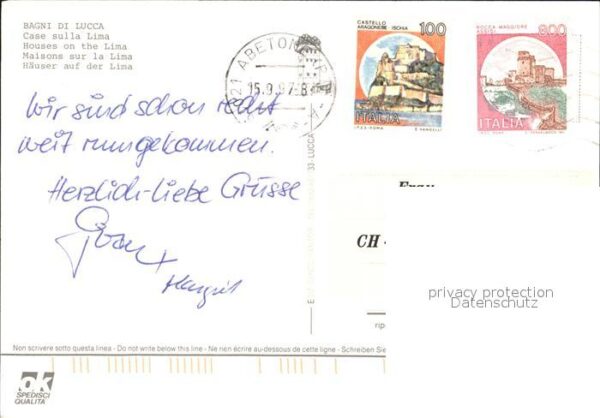 BAGNI DI LUCCA
Case sulla Lima
Houses on the Lima
Maisons sur la Lima
Häuser auf der Lima
CASTELLO
ARAGONESE ISCHIA
100
ITALIA
ROCCA MAGGIORE
ASSISI
800
ITALIA
21 ABETONE
15.9.97-8
Wir sind schon recht
weit rumgekommen.
Herzlich-liebe Grüsse
+ Margrit
33-LUCCA
Frau
CH -
privacy protection
Datenschutz
rip
Non scrivere sotto questa linea - Do not write below this line - Ne rien écrire au-dessous de cette ligne - Schreiben Sie
ok
SPEDISCI
QUALITÀ